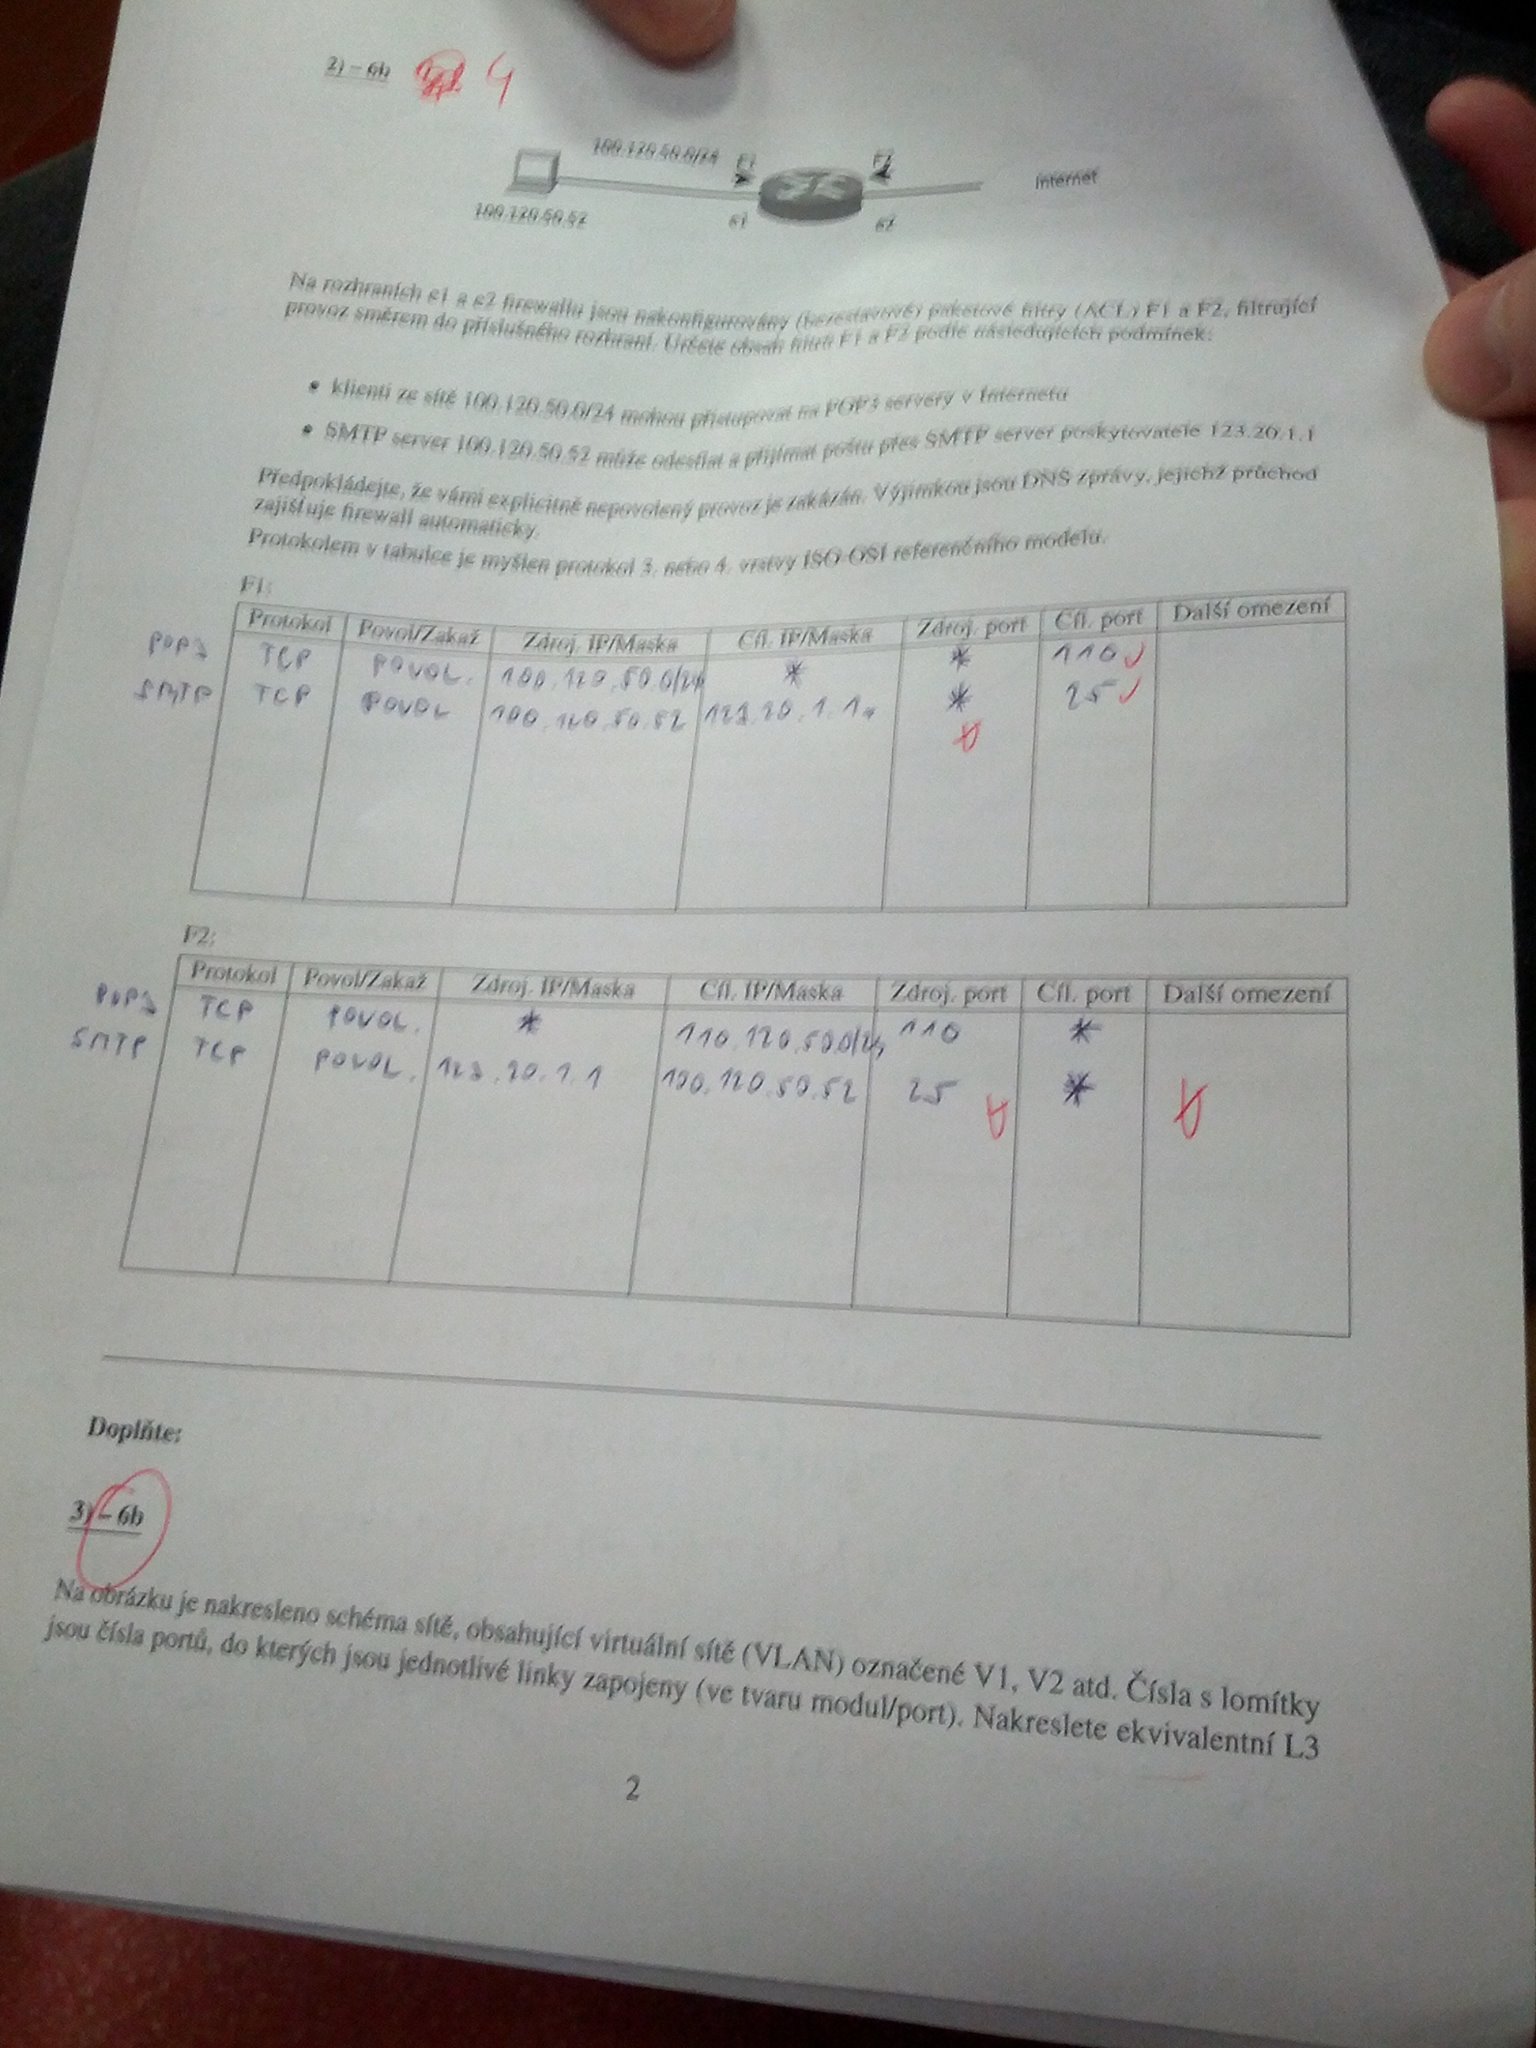 2) – 6b 4
100.120.50.0/24 F1 F2
Internet
100.120.50.52 e1 e2
Na rozhraních e1 a e2 firewallu jsou nakonfigurovány (bezestavové) paketové filtry (ACL) F1 a F2, filtrující
provoz směrem do příslušného rozhraní. Určete obsah filtrů F1 a F2 podle následujících podmínek:
• klienti ze sítě 100.120.50.0/24 mohou přistupovat na POP3 servery v Internetu
• SMTP server 100.120.50.52 může odesílat a přijímat poštu přes SMTP server poskytovatele 123.20.1.1
Předpokládejte, že vámi explicitně nepovolený provoz je zakázán. Výjimkou jsou DNS zprávy, jejichž průchod
zajišťuje firewall automaticky.
Protokolem v tabulce je myšlen protokol 3. nebo 4. vrstvy ISO OSI referenčního modelu.
F1:
Protokol Povol/Zakaž Zdroj. IP/Maska Cíl. IP/Maska Zdroj. port Cíl. port Další omezení
POP3 TCP POVOL. 100.120.50.0/24 * * 110
SMTP TCP POVOL 100.120.50.52 123.20.1.1 * 25
F2:
Protokol Povol/Zakaž Zdroj. IP/Maska Cíl. IP/Maska Zdroj. port Cíl. port Další omezení
POP3 TCP POVOL. * 110.120.50.0/24 110 *
SMTP TCP POVOL. 123.20.1.1 100.120.50.52 25 *
Doplňte:
3) – 6b
Na obrázku je nakresleno schéma sítě, obsahující virtuální sítě (VLAN) označené V1, V2 atd. Čísla s lomítky
jsou čísla portů, do kterých jsou jednotlivé linky zapojeny (ve tvaru modul/port). Nakreslete ekvivalentní L3
2